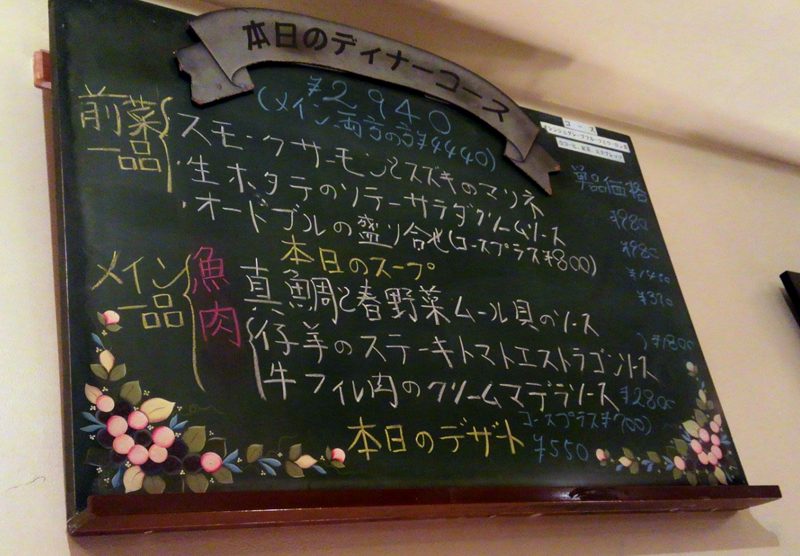 本日のディナーコース
¥2940
(メイン両方の方¥4440)
コース
単品価格
前菜一品
・スモークサーモンとスズキのマリネ ¥980
・生ホタテのソテーサラダクリームソース ¥980
・オードブルの盛り合せ(コースプラス¥800)
本日のスープ ¥370
メイン一品
魚 真鯛と春野菜ムール貝のソース
肉 仔羊のステーキトマトエストラゴンソース
牛フィレ肉のクリームマデラソース ¥2800
コースプラス¥700)
本日のデザート ¥550